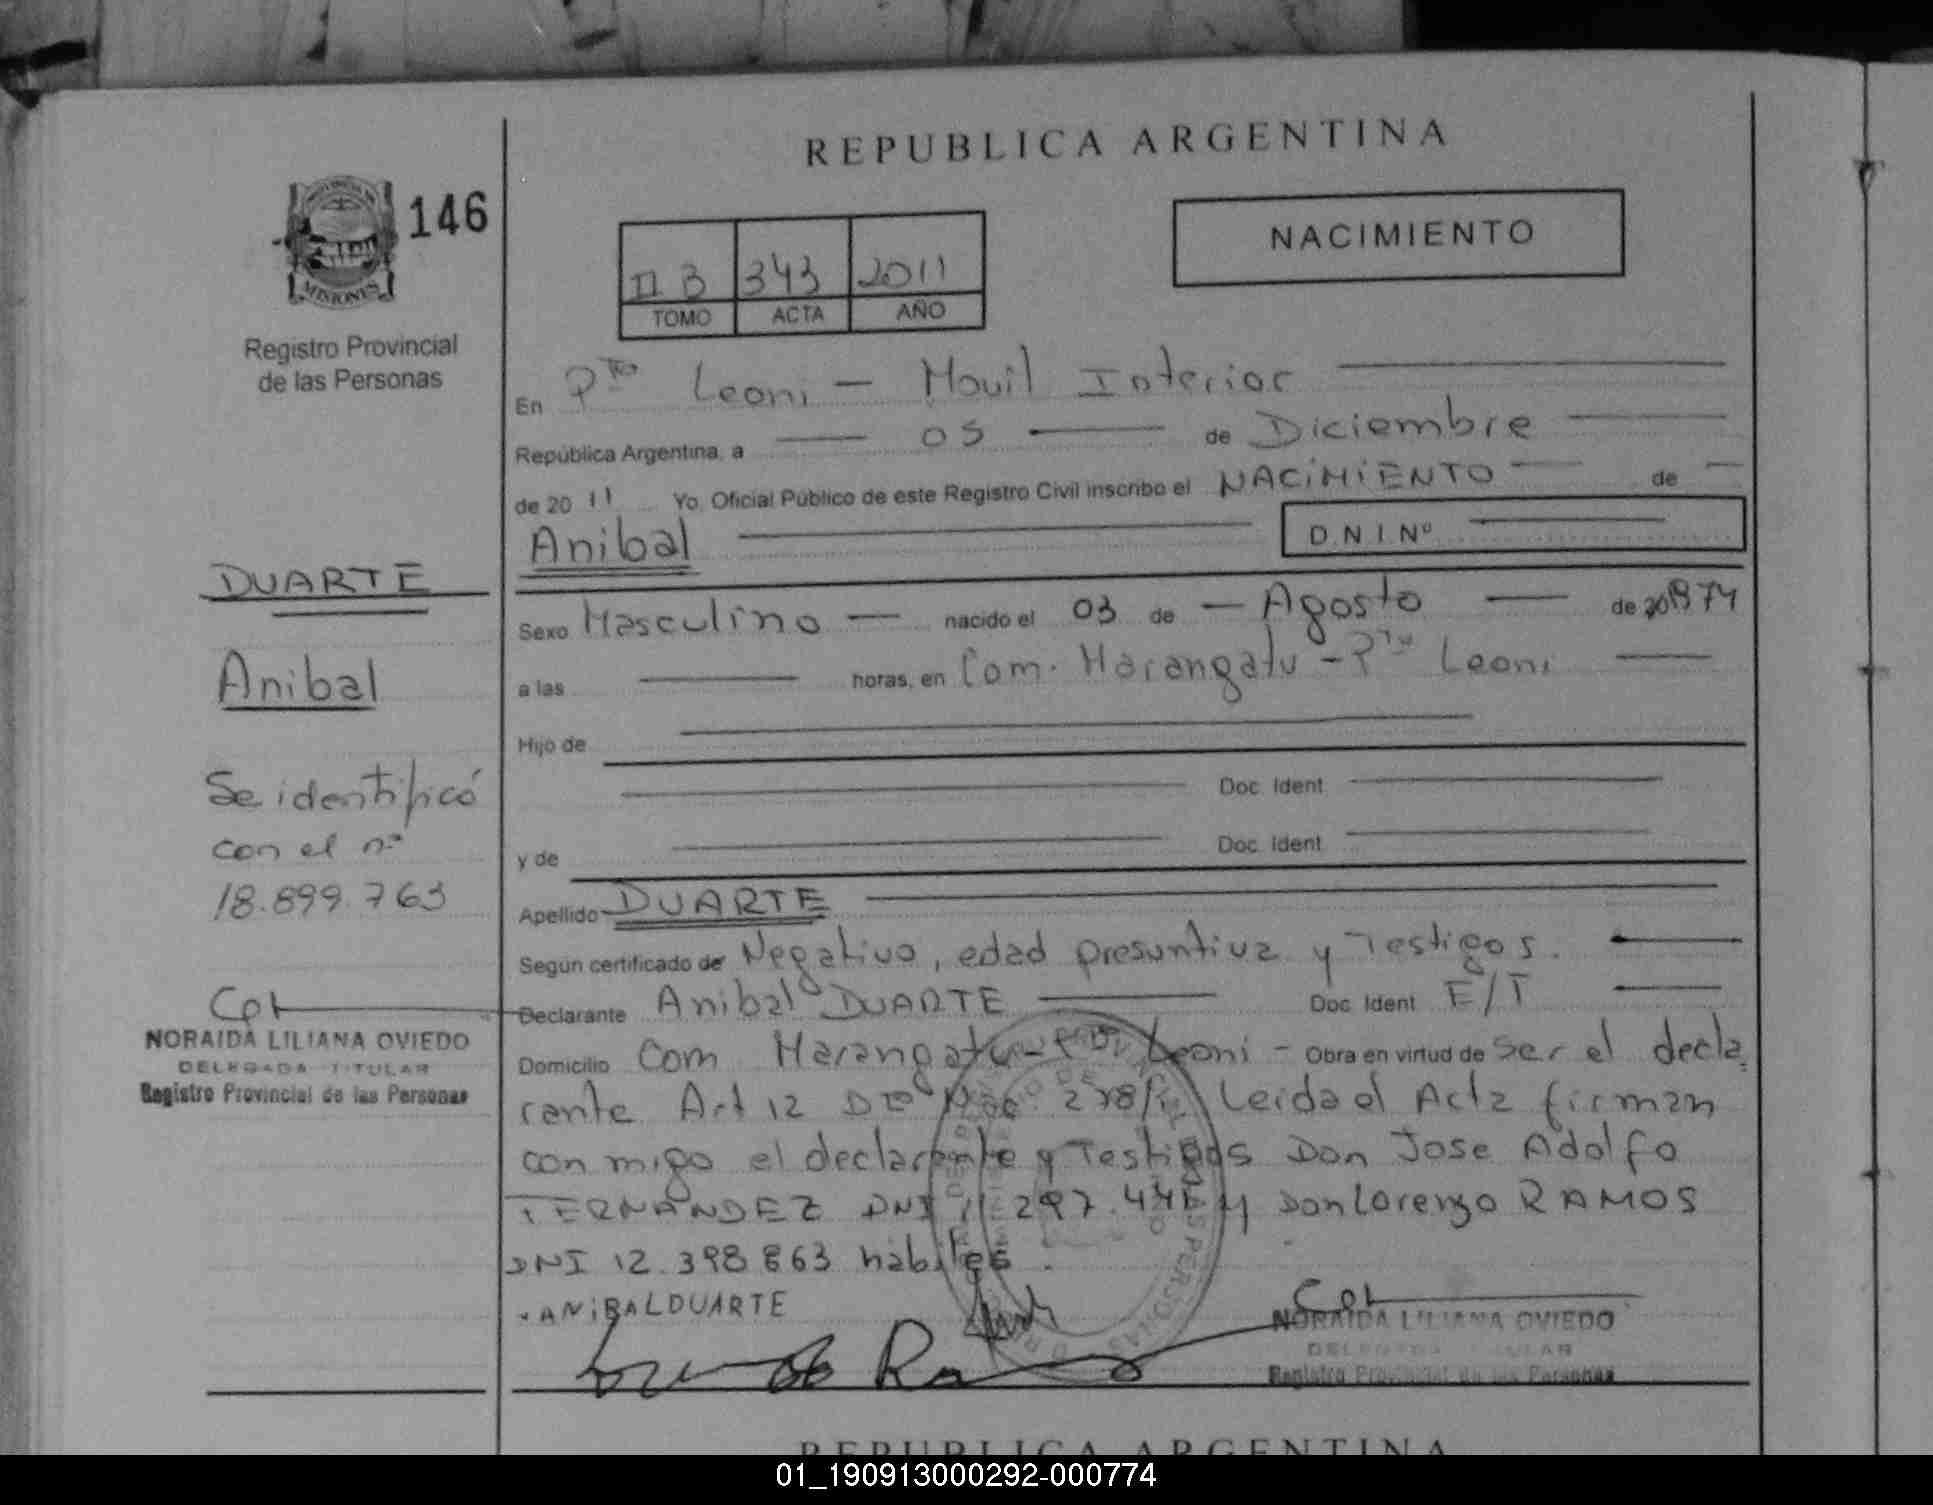 REPUBLICA ARGENTINA
146
NACIMIENTO
II B 343 2011
TOMO ACTA AÑO
MISIONES
Registro Provincial
de las Personas
En Pto Leoni - Movil Interior
República Argentina, a 05 de Diciembre
de 20 11 Yo, Oficial Público de este Registro Civil inscribo el NACIMIENTO de
Anibal D.N.I. Nº
DUARTE
Anibal
Se identificó
con el nº
18.899.763
NORAIDA LILIANA OVIEDO
DELEGADA TITULAR
Registro Provincial de las Personas
Sexo Masculino nacido el 03 de Agosto de 1974
a las horas, en Com. Marangatu - Pto Leoni
Hijo de
Doc. Ident
y de Doc. Ident
Apellido DUARTE
Según certificado de Negativo, edad presuntiva y Testigos.
Declarante Anibal DUARTE Doc. Ident E/T
Domicilio Com Marangatu - Pto Leoni - Obra en virtud de ser el decla
rante Art 12 Dto 278/ Leida el Acta firman
con migo el declarante y Testigos Don Jose Adolfo
FERNANDEZ DNI 11 297.441 y Don Lorenzo RAMOS
DNI 12.398 863 habiles.
ANIBAL DUARTE
NORAIDA LILIANA OVIEDO
DELEGADA TITULAR
Registro Provincial de las Personas
REPUBLICA ARGENTINA
01_190913000292-000774